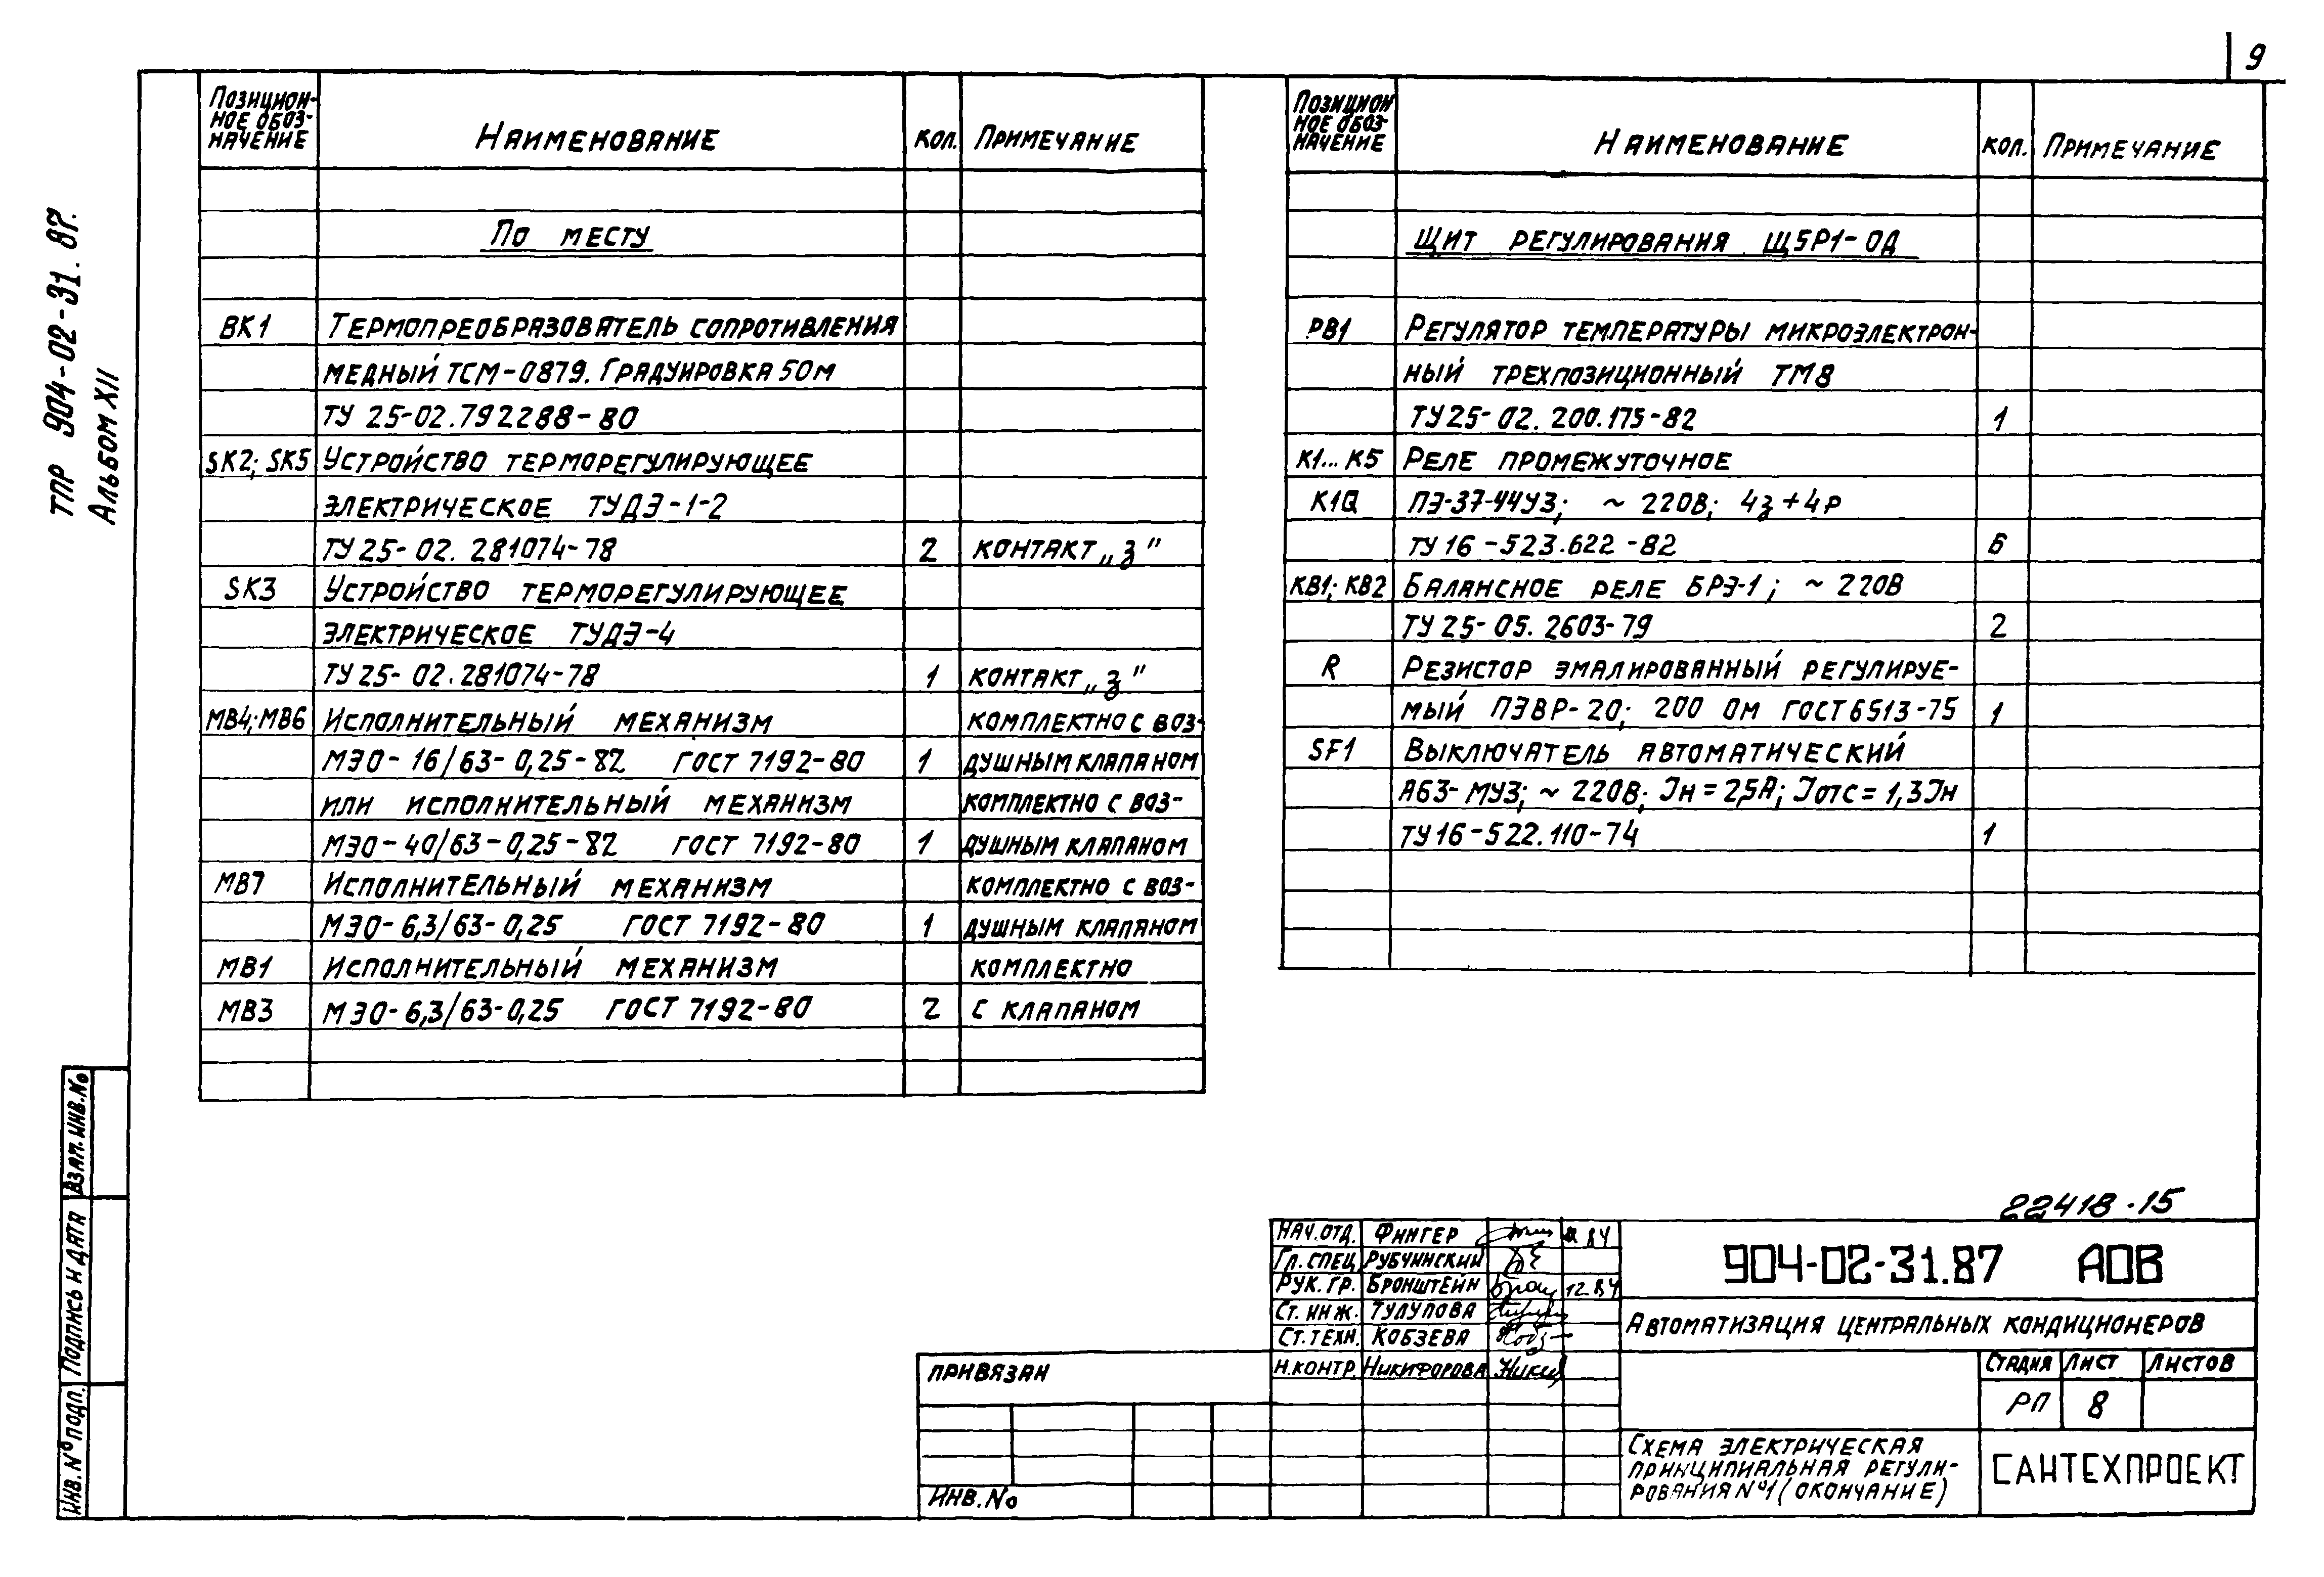 9
ТПР 904-02-31.87.
Альбом XII
Позицион-
ное обоз-
начение
Наименование
Кол.
Примечание
По месту
ВК1 Термопреобразователь сопротивления
медный ТСМ-0879. Градуировка 50М
ТУ 25-02.792288-80
SK2; SK5 Устройство терморегулирующее
электрическое ТУДЭ-1-2
ТУ 25-02.281074-78 2 контакт „з"
SK3 Устройство терморегулирующее
электрическое ТУДЭ-4
ТУ 25-02.281074-78 1 контакт „з"
МВ4; МВ6 Исполнительный механизм комплектно с воз-
МЭО-16/63-0,25-82 ГОСТ 7192-80 1 душным клапаном
или исполнительный механизм комплектно с воз-
МЭО-40/63-0,25-82 ГОСТ 7192-80 1 душным клапаном
МВ7 Исполнительный механизм комплектно с воз-
МЭО-6,3/63-0,25 ГОСТ 7192-80 1 душным клапаном
МВ1 Исполнительный механизм комплектно
МВ3 МЭО-6,3/63-0,25 ГОСТ 7192-80 2 с клапаном
Позицион
ное обоз-
начение
Наименование
Кол.
Примечание
Щит регулирования Щ5Р1-0Д
РВ1 Регулятор температуры микроэлектрон-
ный трехпозиционный ТМ8
ТУ 25-02.200.175-82 1
К1...К5 Реле промежуточное
К1Q ПЭ-37-44У3; ~ 220В; 4з+4р
ТУ 16-523.622-82 6
КВ1; КВ2 Балансное реле БРЭ-1; ~ 220В
ТУ 25-05.2603-79 2
R Резистор эмалированный регулируе-
мый ПЭВР-20; 200 Ом ГОСТ 6513-75 1
SF1 Выключатель автоматический
А63-МУ3; ~ 220В; Jн=2,5А; Jотс=1,3Jн
ТУ 16-522.110-74 1
Взам. инв. №
Подпись и дата
Инв. № подл.
22418-15
Нач. отд. Фингер 84
Гл. спец Рубчинский
Рук. гр. Бронштейн 12.84
Ст. инж. Тулупова
Ст. техн. Кобзева
Н. контр. Никифорова
904-02-31.87 АОВ
Автоматизация центральных кондиционеров
Стадия Лист Листов
РП 8
Схема электрическая
принципиальная регули-
рования №1 (окончание)
САНТЕХПРОЕКТ
Привязан
Инв. №